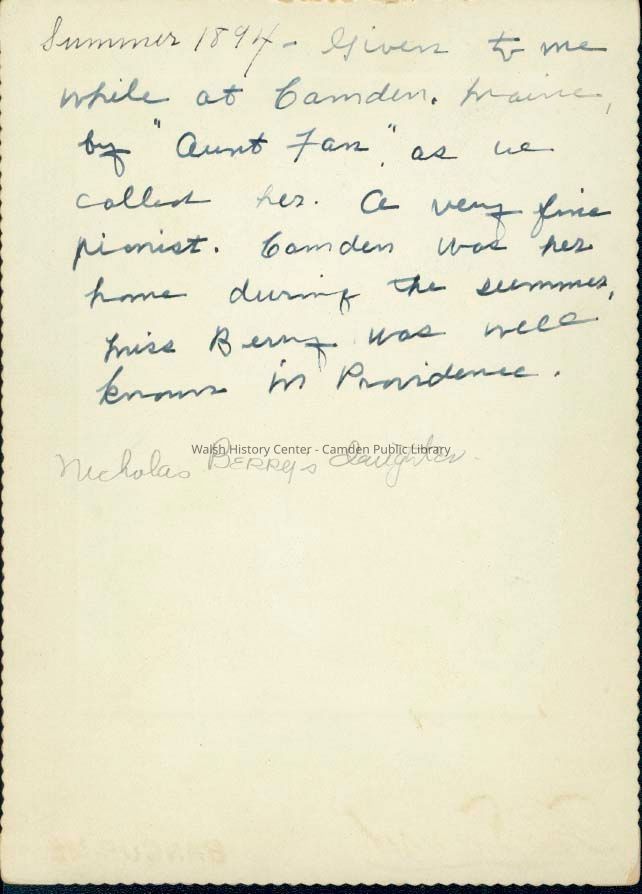 Summer 1894 - Given to me
while at Camden. Maine,
by "Aunt Fan", as we
called her. A very fine
pianist. Camden was her
home during the summer,
Miss Berry was well
known in Providence.
Walsh History Center - Camden Public Library
Nicholas Berrys daughter.